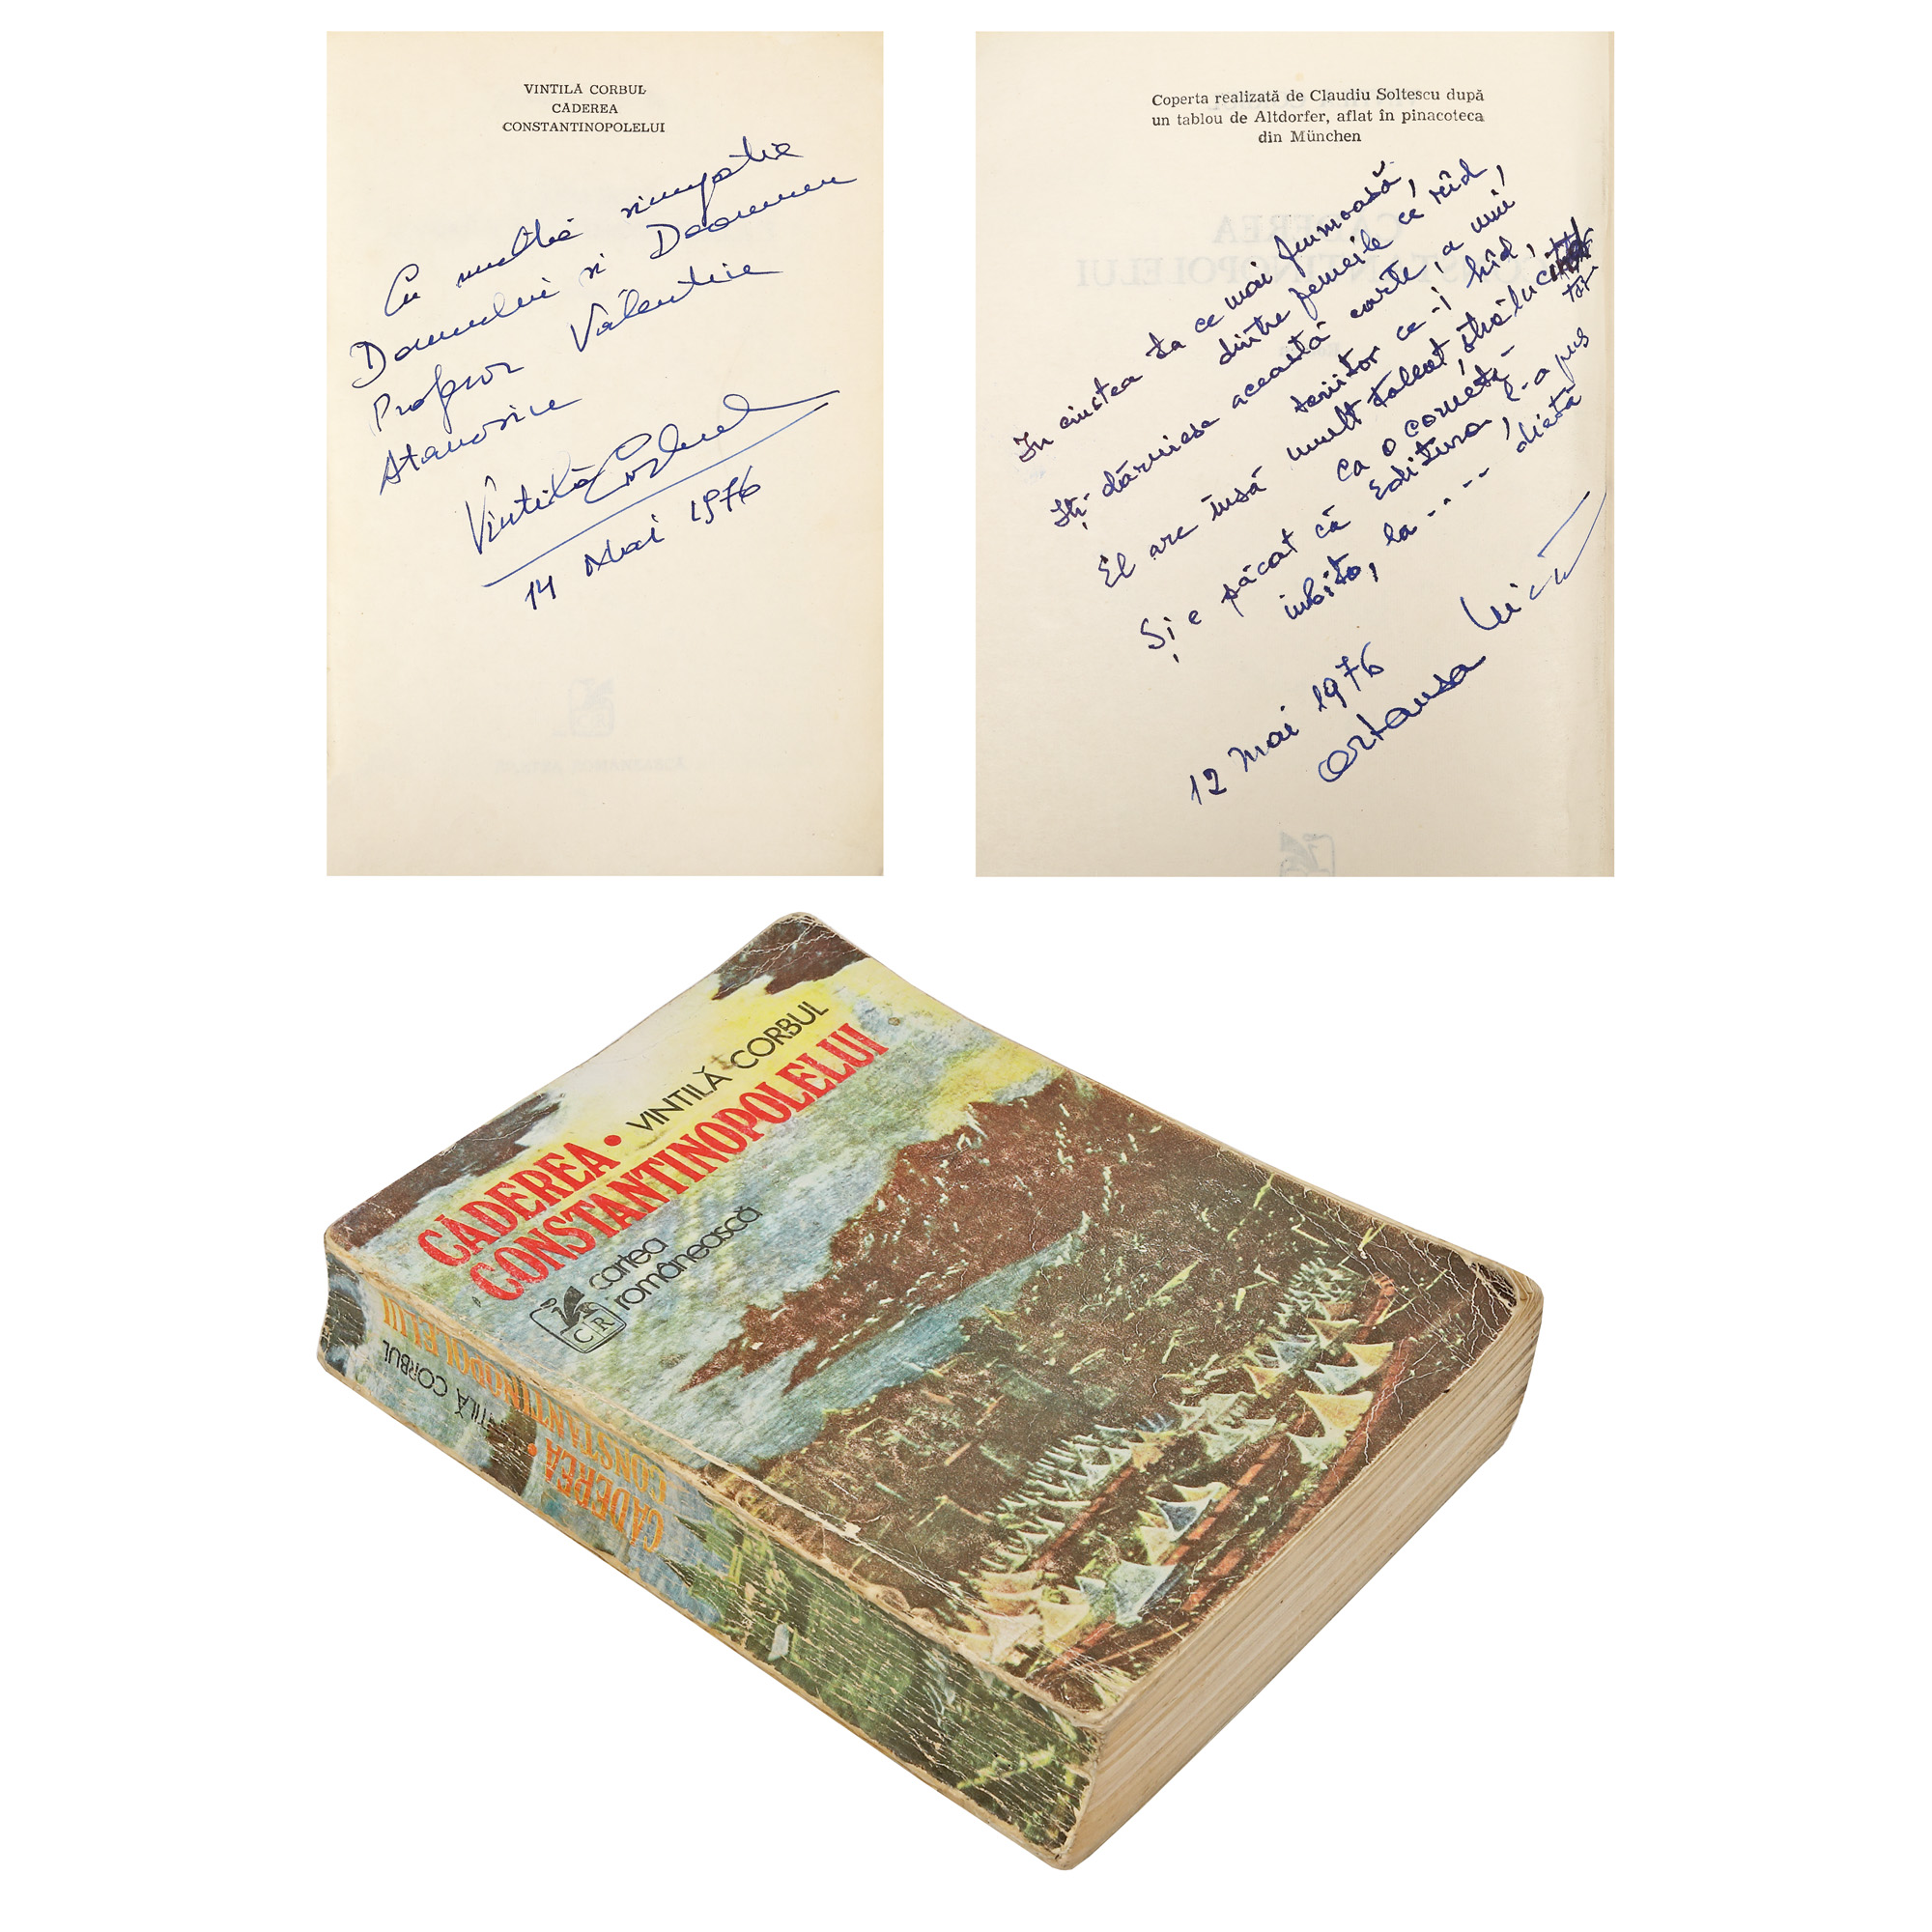 VINTILĂ CORBUL
CĂDEREA
CONSTANTINOPOLELUI
Cu multă simpatie
Domnului și Doamnei
Profesor Valentin
Vintilă Corbul
14 Mai 1976
Coperta realizată de Claudiu Soltescu după
un tablou de Altdorfer, aflat în pinacoteca
din München
În cinstea ta cea mai frumoasă,
dintre femeile ce rîd,
Iți dăruiesc această carte, a unui
scriitor ce-i hîd,
El are însă mult talent, strălucitor
ca o cometă -
Și e păcat că Editura l-a pus
iubito, la - - - - dietă
12 Mai 1976
Ortansa
VINTILĂ CORBUL
CĂDEREA •
CONSTANTINOPOLELUI
cartea
românească
CR
VINTILĂ CORBUL
CĂDEREA •
CONSTANTINOPOLELUI